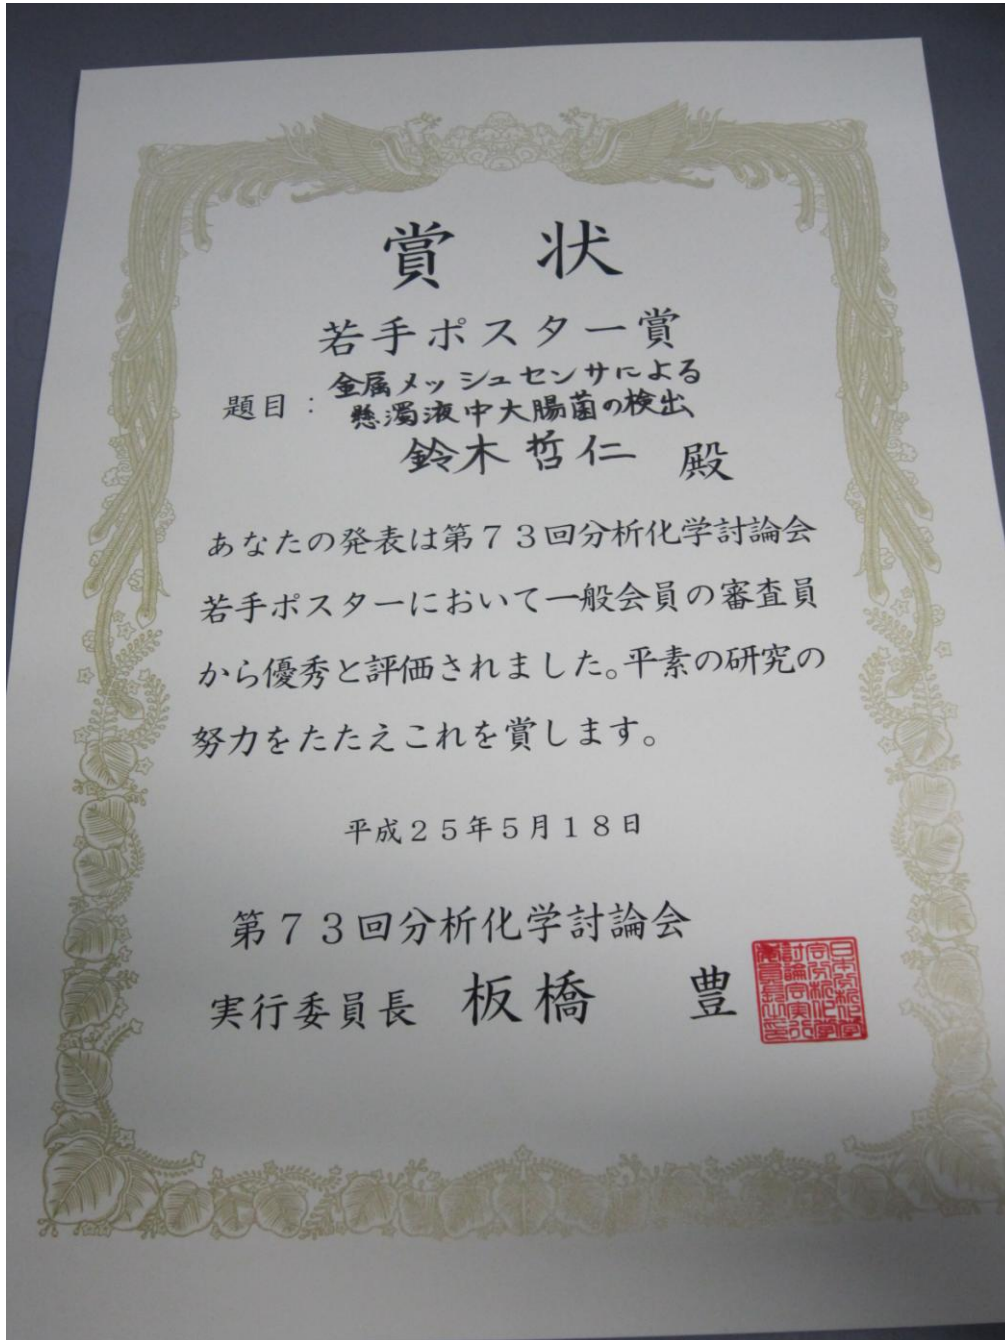 賞 状
若手ポスター賞
題目：
金属メッシュセンサによる
懸濁液中大腸菌の検出
鈴木哲仁 殿
あなたの発表は第７３回分析化学討論会
若手ポスターにおいて一般会員の審査員
から優秀と評価されました。平素の研究の
努力をたたえこれを賞します。
平成２５年５月１８日
第７３回分析化学討論会
実行委員長 板橋 豊